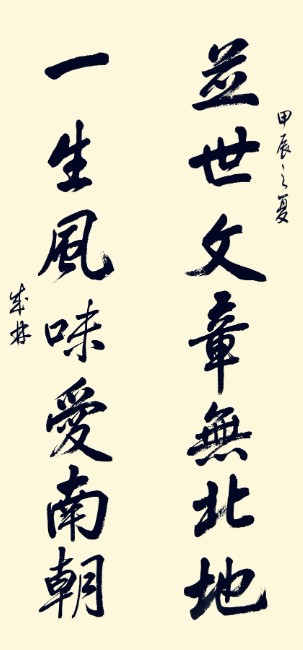 並世文章無北地
甲辰之夏
一生風味愛南朝
成林